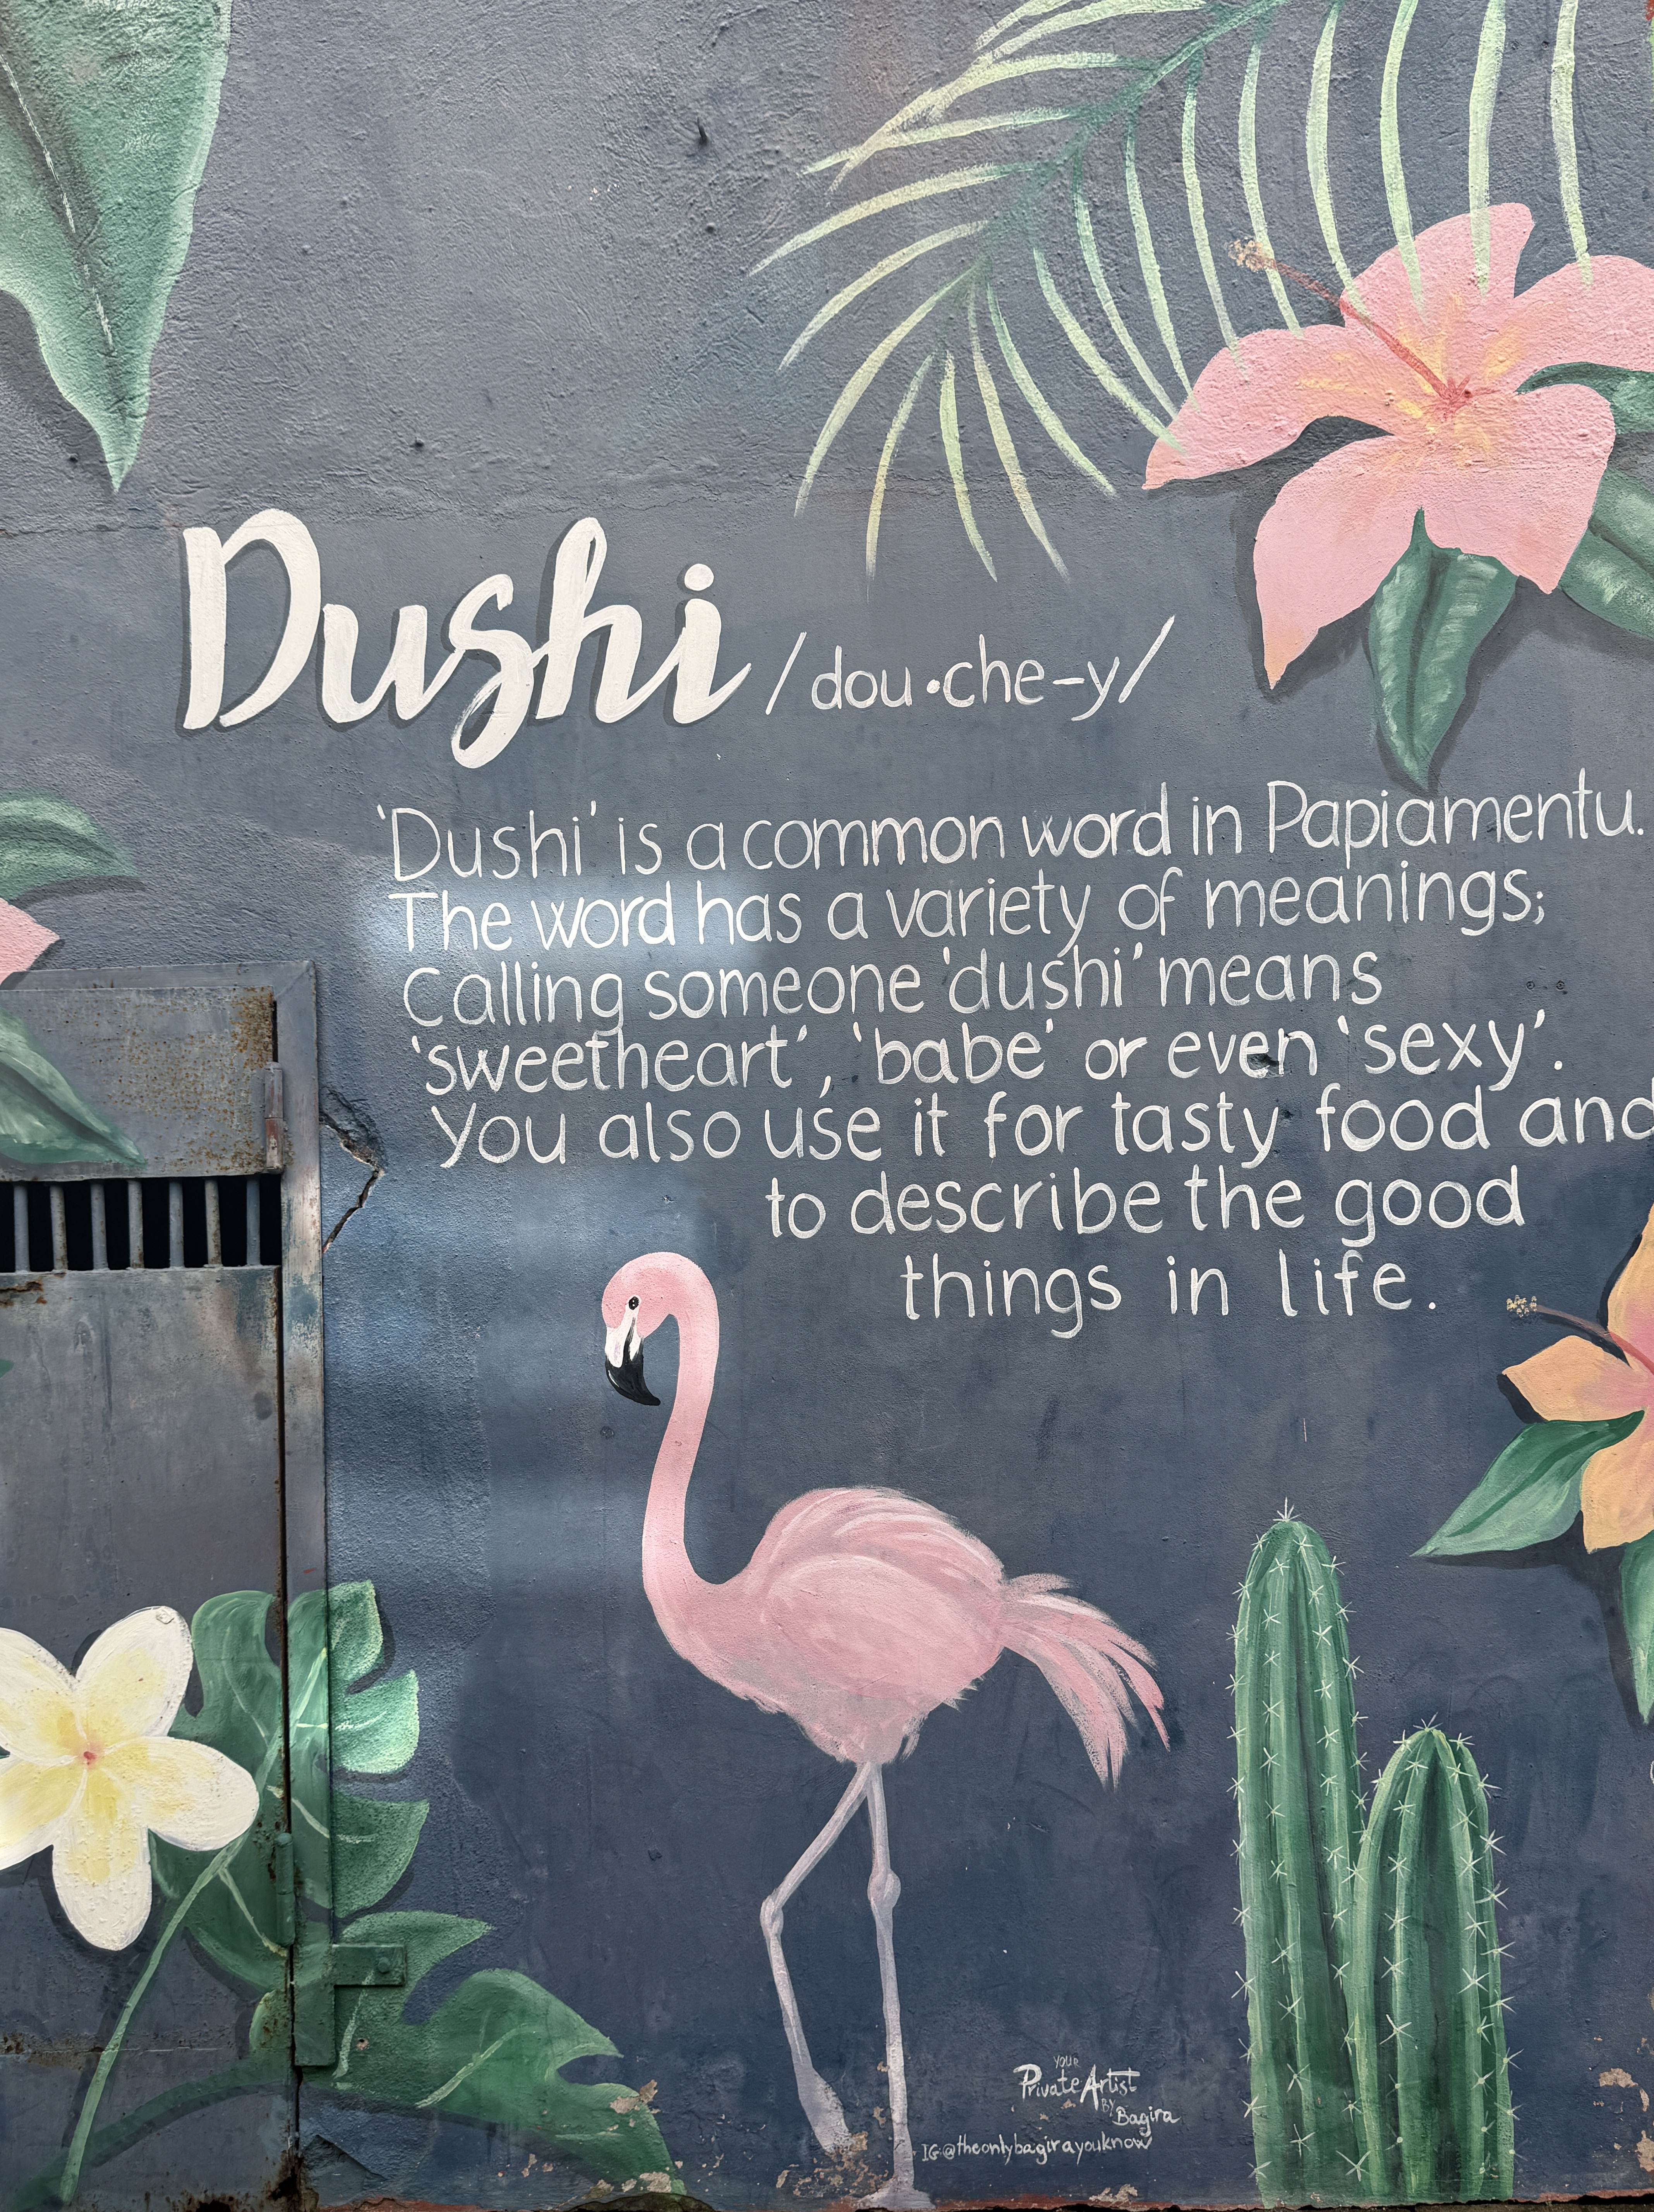 Dushi /dou•che-y/
'Dushi' is a common word in Papiamentu.
The word has a variety of meanings;
Calling someone 'dushi' means
'sweetheart', 'babe' or even 'sexy'.
You also use it for tasty food and
to describe the good
things in life.
YOUR
Private Artist
BY
Bagira
IG:@theonlybagirayouknow